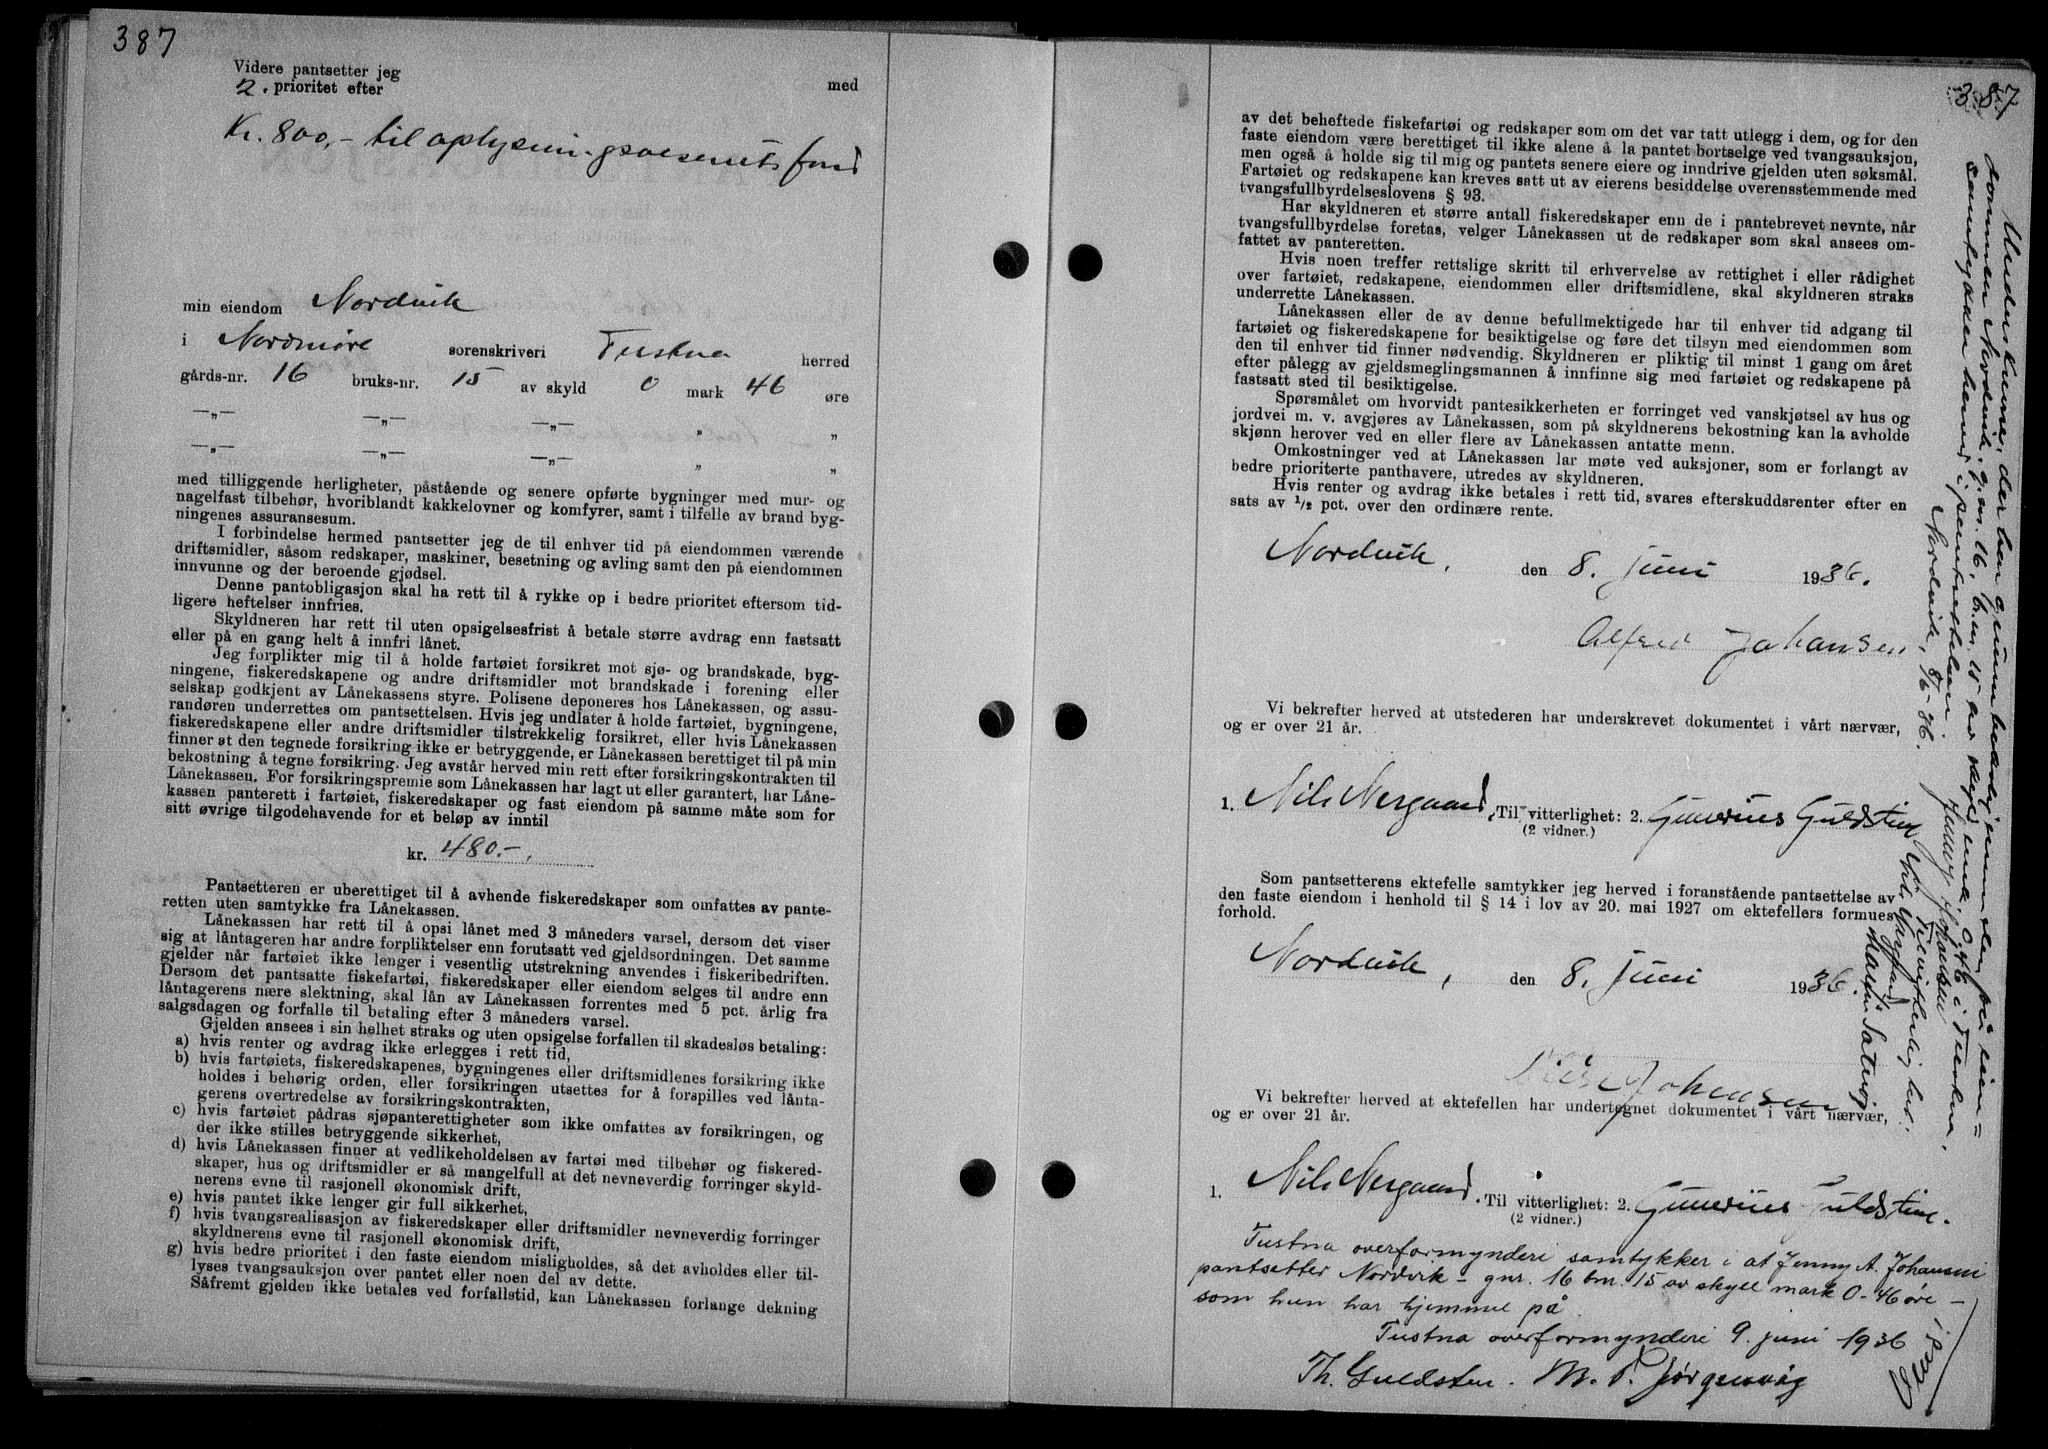 387
Videre pantsetter jeg
2. prioritet efter med
Kr. 800,- til oplysningsvesenets fond
min eiendom Nordvik
i Nordmøre sorenskriveri Tustna herred
gårds-nr. 16 bruks-nr. 15 av skyld 0 mark 46 øre
—„— —„— —„— „ „
—„— —„— —„— „ „
med tilliggende herligheter, påstående og senere opførte bygninger med mur- og
nagelfast tilbehør, hvoriblandt kakkelovner og komfyrer, samt i tilfelle av brand byg-
ningenes assuransesum.
I forbindelse hermed pantsetter jeg de til enhver tid på eiendommen værende
driftsmidler, såsom redskaper, maskiner, besetning og avling samt den på eiendommen
innvunne og der beroende gjødsel.
Denne pantobligasjon skal ha rett til å rykke op i bedre prioritet eftersom tid-
ligere heftelser innfries.
Skyldneren har rett til uten opsigelsesfrist å betale større avdrag enn fastsatt
eller på en gang helt å innfri lånet.
Jeg forplikter mig til å holde fartøiet forsikret mot sjø- og brandskade, byg-
ningene, fiskeredskapene og andre driftsmidler mot brandskade i forening eller
selskap godkjent av Lånekassens styre. Polisene deponeres hos Lånekassen, og assu-
randøren underrettes om pantsettelsen. Hvis jeg undlater å holde fartøiet, bygningene,
fiskeredskapene eller andre driftsmidler tilstrekkelig forsikret, eller hvis Lånekassen
finner at den tegnede forsikring ikke er betryggende, er Lånekassen berettiget til på min
bekostning å tegne forsikring. Jeg avstår herved min rett efter forsikringskontrakten til
Lånekassen. For forsikringspremie som Lånekassen har lagt ut eller garantert, har Låne-
kassen panterett i fartøiet, fiskeredskaper og fast eiendom på samme måte som for
sitt øvrige tilgodehavende for et beløp av inntil
kr. 480.-,
Pantsetteren er uberettiget til å avhende fiskeredskaper som omfattes av pante-
retten uten samtykke fra Lånekassen.
Lånekassen har rett til å opsi lånet med 3 måneders varsel, dersom det viser
sig at låntageren har andre forpliktelser enn forutsatt ved gjeldsordningen. Det samme
gjelder når fartøiet ikke lenger i vesentlig utstrekning anvendes i fiskeribedriften.
Dersom det pantsatte fiskefartøi, fiskeredskaper eller eiendom selges til andre enn
låntagerens nære slektning, skal lån av Lånekassen forrentes med 5 pct. årlig fra
salgsdagen og forfalle til betaling efter 3 måneders varsel.
Gjelden ansees i sin helhet straks og uten opsigelse forfallen til skadesløs betaling:
a) hvis renter og avdrag ikke erlegges i rett tid,
b) hvis fartøiets, fiskeredskapenes, bygningenes eller driftsmidlenes forsikring ikke
holdes i behørig orden, eller forsikringen utsettes for å forspilles ved lånta-
gerens overtredelse av forsikringskontrakten,
c) hvis fartøiet pådras sjøpanterettigheter som ikke omfattes av forsikringen, og
der ikke stilles betryggende sikkerhet,
d) hvis Lånekassen finner at vedlikeholdelsen av fartøi med tilbehør og fiskered-
skaper, hus og driftsmidler er så mangelfull at det nevneverdig forringer skyld-
nerens evne til rasjonell økonomisk drift,
e) hvis pantet ikke lenger gir full sikkerhet,
f) hvis tvangsrealisasjon av fiskeredskaper eller driftsmidler nevneverdig forringer
skyldnerens evne til rasjonell økonomisk drift,
g) hvis bedre prioritet i den faste eiendom misligholdes, så det avholdes eller til-
lyses tvangsauksjon over pantet eller noen del av dette.
Såfremt gjelden ikke betales ved forfallstid, kan Lånekassen forlange dekning
387
av det beheftede fiskefartøi og redskaper som om det var tatt utlegg i dem, og for den
faste eiendom være berettiget til ikke alene å la pantet bortselge ved tvangsauksjon,
men også å holde sig til mig og pantets senere eiere og inndrive gjelden uten søksmål.
Fartøiet og redskapene kan kreves satt ut av eierens besiddelse overensstemmende med
tvangsfullbyrdelseslovens § 93.
Har skyldneren et større antall fiskeredskaper enn de i pantebrevet nevnte, når
tvangsfullbyrdelse foretas, velger Lånekassen ut de redskaper som skal ansees om-
fattet av panteretten.
Hvis noen treffer rettslige skritt til erhvervelse av rettighet i eller rådighet
over fartøiet, redskapene, eiendommen eller driftsmidlene, skal skyldneren straks
underrette Lånekassen.
Lånekassen eller de av denne befullmektigede har til enhver tid adgang til
fartøiet og fiskeredskapene for besiktigelse og føre det tilsyn med eiendommen som
den til enhver tid finner nødvendig. Skyldneren er pliktig til minst 1 gang om året
efter pålegg av gjeldsmeglingsmannen å innfinne sig med fartøiet og redskapene på
fastsatt sted til besiktigelse.
Spørsmålet om hvorvidt pantesikkerheten er forringet ved vanskjøtsel av hus og
jordvei m. v. avgjøres av Lånekassen, som på skyldnerens bekostning kan la avholde
skjønn herover ved en eller flere av Lånekassen antatte menn.
Omkostninger ved at Lånekassen lar møte ved auksjoner, som er forlangt av
bedre prioriterte panthavere, utredes av skyldneren.
Hvis renter og avdrag ikke betales i rett tid, svares efterskuddsrenter efter en
sats av 1/2 pct. over den ordinære rente.
Nordvik, den 8. juni 1936.
Alfred Johansen
Vi bekrefter herved at utstederen har underskrevet dokumentet i vårt nærvær,
og er over 21 år.
1. Nils Nergaard. Til vitterlighet: 2. Gunerius Guldstein
(2 vidner.)
Som pantsetterens ektefelle samtykker jeg herved i foranstående pantsettelse av
den faste eiendom i henhold til § 14 i lov av 20. mai 1927 om ektefellers formues-
forhold.
Nordvik, den 8. juni 1936.
Johansen
Vi bekrefter herved at ektefellen har undertegnet dokumentet i vårt nærvær,
og er over 21 år.
1. Nils Nergaard. Til vitterlighet: 2. Gunerius Guldstein.
(2 vidner.)
Tustna overformynderi samtykker i at Jenny A. Johansen
pantsetter Nordvik – gnr. 16 bnr. 15 av skyld mark 0-46 øre –
som hun har hjemmel på.
Tustna overformynderi 9. juni 1936
Th. Guldsten. M. P. Jørgenvåg
Undertegnede, der har grunnbokshjemmelen på eien=
dommen Nordvik, g.nr. 16, b.nr. 15 av skyld mk. 0.46 i Tustna,
samtykker herved i pantsettelsen.
Nordvik, 8/6-36.
Jenny Johansen
Til vitterlighet: